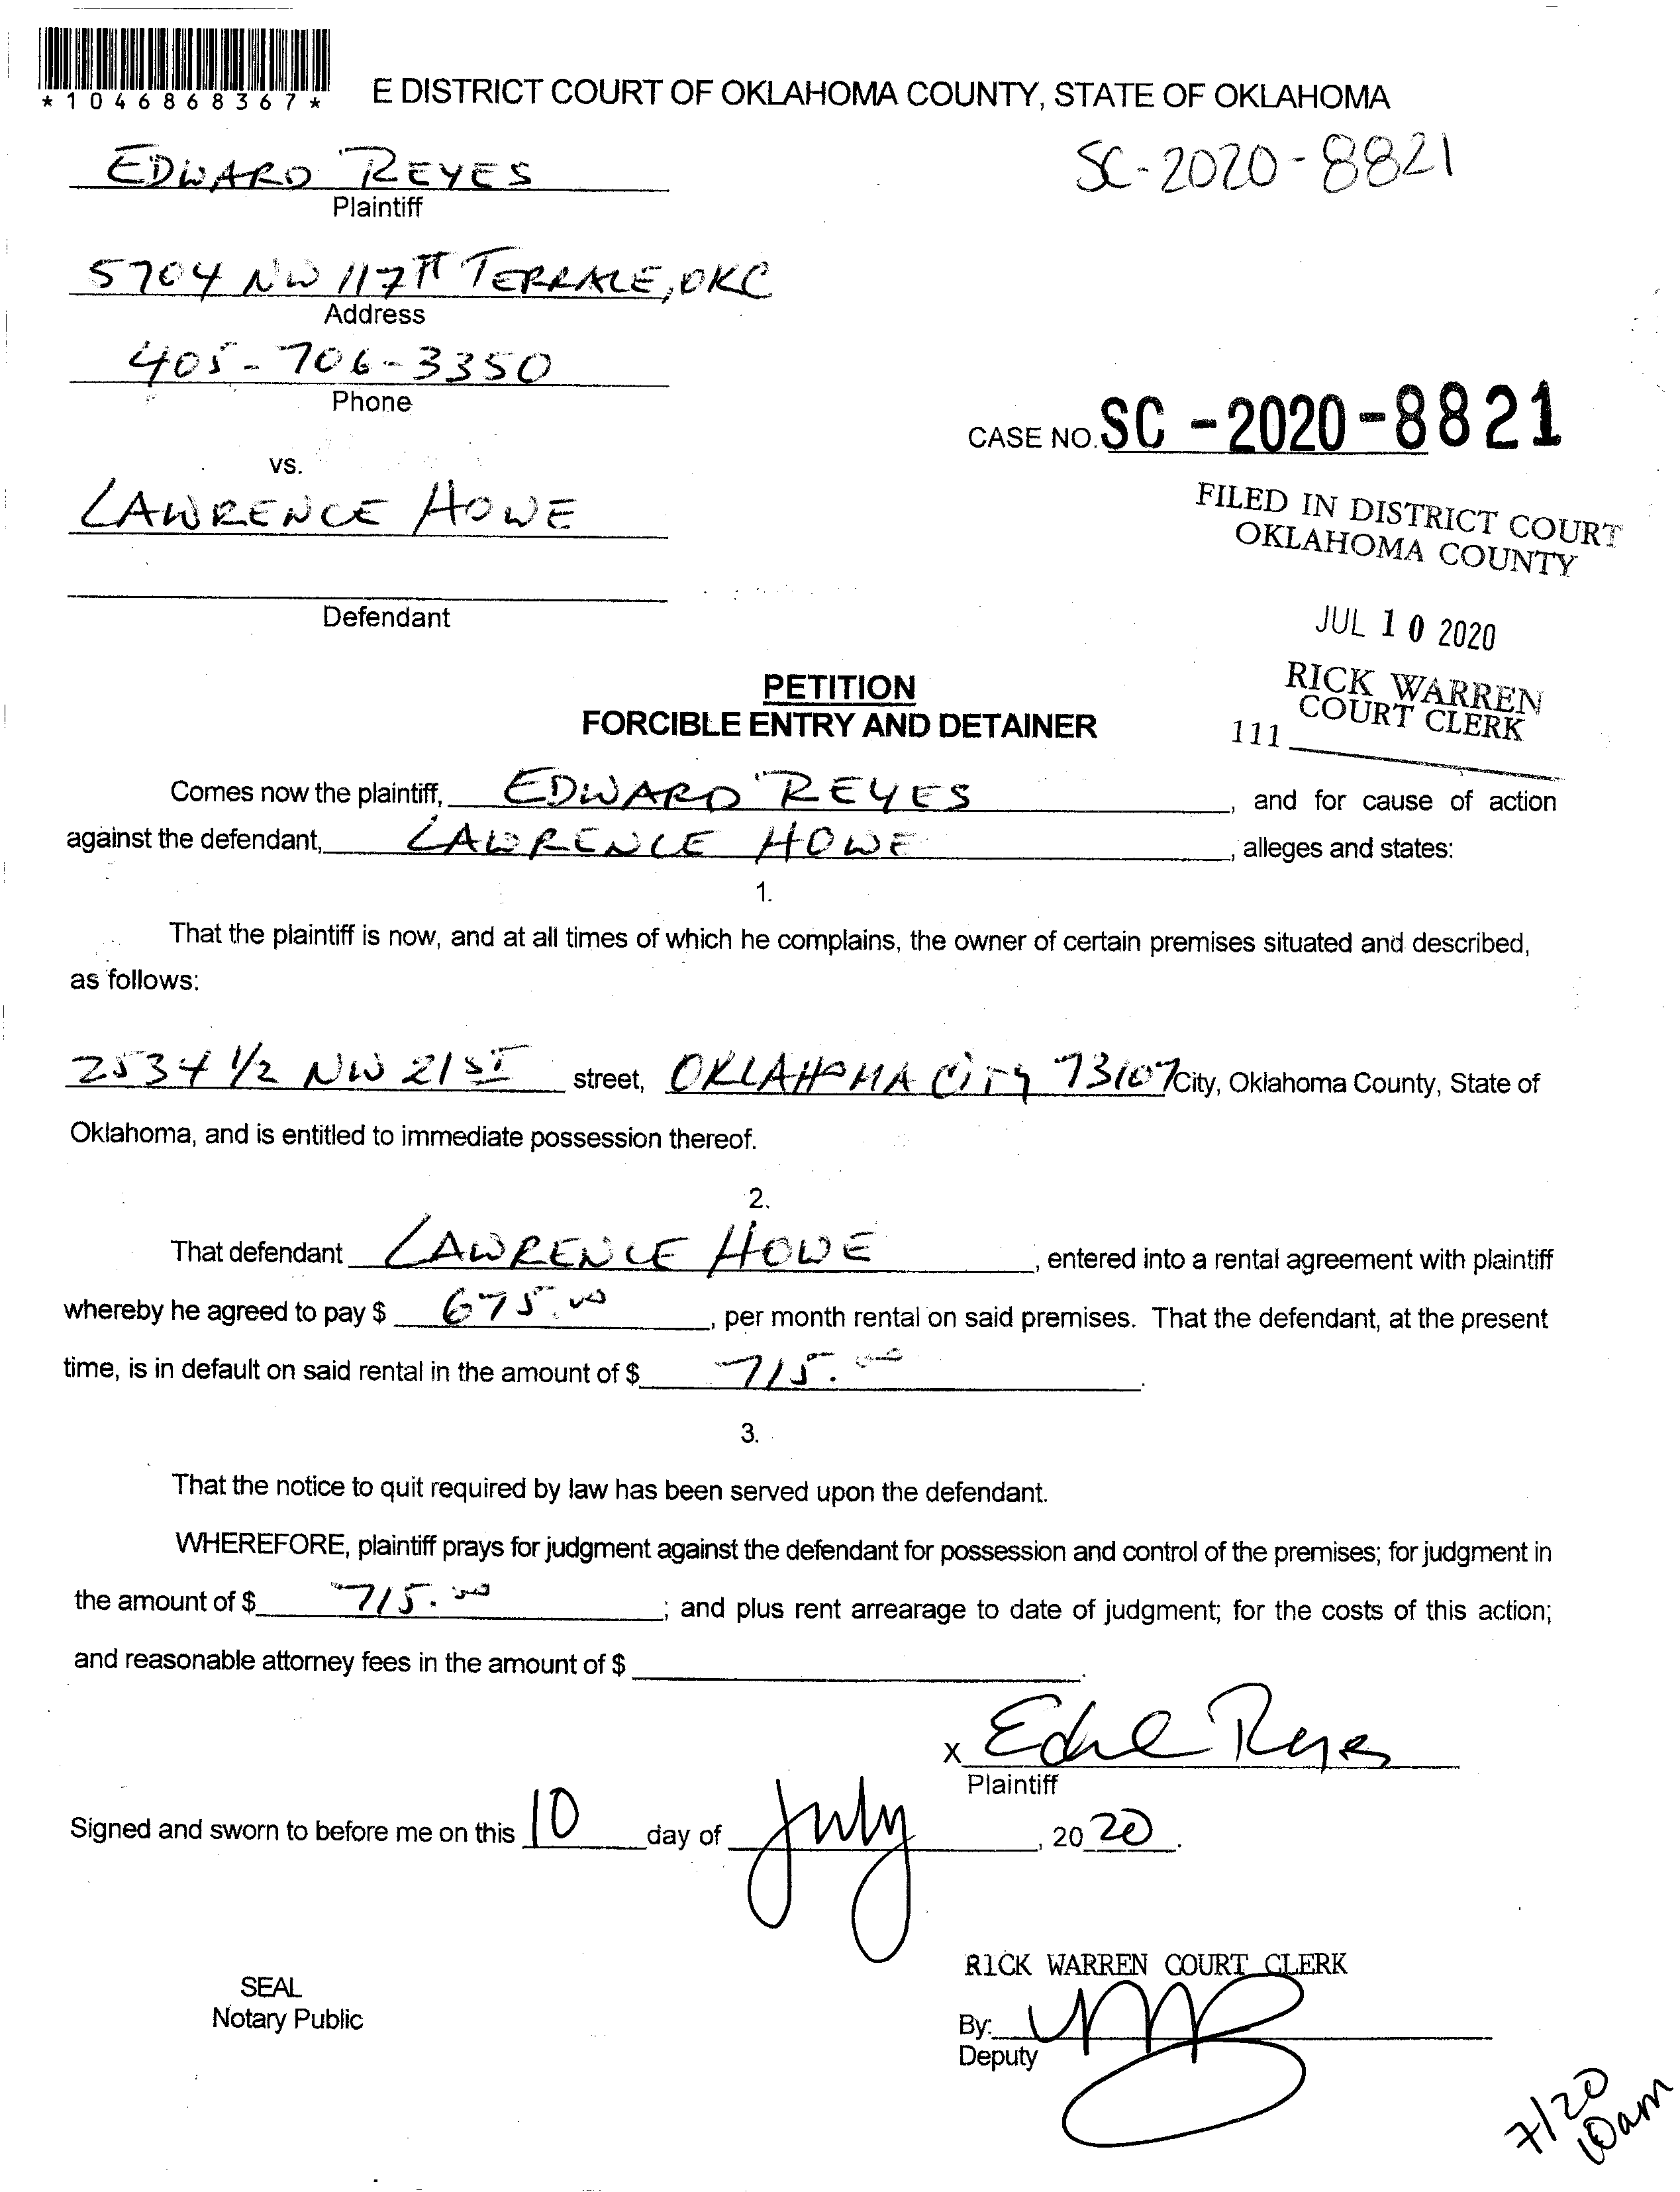 *1046868367*
E DISTRICT COURT OF OKLAHOMA COUNTY, STATE OF OKLAHOMA
EDWARD REYES
SC-2020-8821
Plaintiff
5704 NW 117TH TERRACE, OKC
Address
405-706-3350
Phone
CASE NO. SC -2020-8821
vs.
LAWRENCE HOWE
FILED IN DISTRICT COURT
OKLAHOMA COUNTY
Defendant
JUL 10 2020
RICK WARREN
COURT CLERK
111
PETITION
FORCIBLE ENTRY AND DETAINER
Comes now the plaintiff, EDWARD REYES, and for cause of action
against the defendant, LAWRENCE HOWE, alleges and states:
1.
That the plaintiff is now, and at all times of which he complains, the owner of certain premises situated and described,
as follows:
2534 1/2 NW 21ST street, OKLAHOMA CITY 73107 City, Oklahoma County, State of
Oklahoma, and is entitled to immediate possession thereof.
2.
That defendant LAWRENCE HOWE, entered into a rental agreement with plaintiff
whereby he agreed to pay $ 675.00, per month rental on said premises. That the defendant, at the present
time, is in default on said rental in the amount of $ 715.00.
3.
That the notice to quit required by law has been served upon the defendant.
WHEREFORE, plaintiff prays for judgment against the defendant for possession and control of the premises; for judgment in
the amount of $ 715.00; and plus rent arrearage to date of judgment; for the costs of this action;
and reasonable attorney fees in the amount of $ .
x Edward Reyes
Plaintiff
Signed and sworn to before me on this 10 day of July, 2020.
RICK WARREN COURT CLERK
SEAL
Notary Public
By:
Deputy
7/20
10am